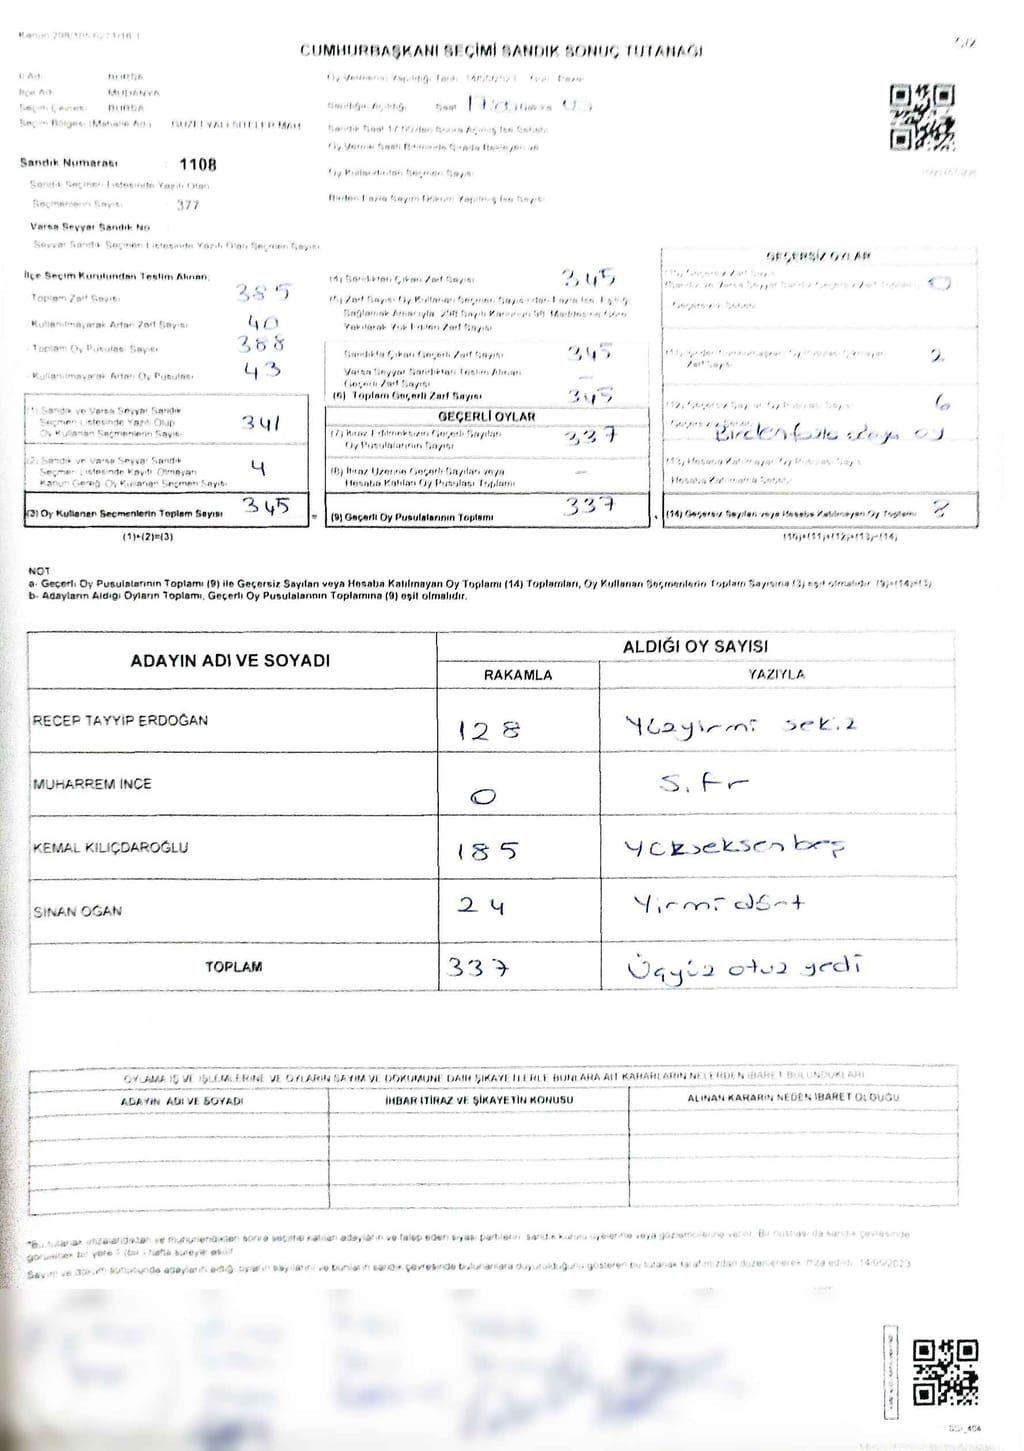 CUMHURBAŞKANI SEÇİMİ SANDIK SONUÇ TUTANAĞI
İl Adı: BURSA
İlçe Adı: MUDANYA
Seçim Çevresi: BURSA
Seçim Bölgesi (Mahalle Adı): GÜZELYALI SİTELER MAH
Sandık Numarası 1108
Sandık Seçmen Listesinde Yazılı Olan
Seçmenlerin Sayısı 377
Varsa Seyyar Sandık No
Seyyar Sandık Seçmen Listesinde Yazılı Olan Seçmen Sayısı
Oy Vermenin Yapıldığı Tarih 14/05/2023
Sandığın Açıldığı Saat
Oy Kullandırılan Seçmen Sayısı
Birden Fazla Sayım Döküm Yapılmış İse Sayısı
İlçe Seçim Kurulundan Teslim Alınan:
Toplam Zarf Sayısı 385
- Kullanılmayarak Artan Zarf Sayısı 40
- Toplam Oy Pusulası Sayısı 388
- Kullanılmayarak Artan Oy Pusulası 43
(1) Sandık ve Varsa Seyyar Sandık
Seçmen Listesinde Yazılı Olup
Oy Kullanan Seçmenlerin Sayısı 341
(2) Sandık ve Varsa Seyyar Sandık
Seçmen Listesinde Kayıtlı Olmayan
Kanun Gereği Oy Kullanan Seçmen Sayısı 4
(3) Oy Kullanan Seçmenlerin Toplam Sayısı 345
(1)+(2)=(3)
(4) Sandıktan Çıkan Zarf Sayısı 345
(5) Zarf Sayısı Oy Kullanan Seçmen Sayısından Fazla İse, Eşitliği
Sağlamak Amacıyla, 298 Sayılı Kanunun 98. Maddesine Göre
Yakılarak Yok Edilen Zarf Sayısı
Sandıkta Çıkan Geçerli Zarf Sayısı 345
Varsa Seyyar Sandıktan Teslim Alınan
Geçerli Zarf Sayısı —
(6) Toplam Geçerli Zarf Sayısı 345
GEÇERLİ OYLAR
(7) İtiraz Edilmeksizin Geçerli Sayılan
Oy Pusulalarının Sayısı 337
(8) İtiraz Üzerine Geçerli Sayılan veya
Hesaba Katılan Oy Pusulası Toplamı —
(9) Geçerli Oy Pusulalarının Toplamı 337
GEÇERSİZ OYLAR
(10) Geçersiz Zarf Sayısı
(Sandık ve Varsa Seyyar Sandık Geçersiz Zarf Toplamı) 0
Geçersizlik Sebebi
Zarf Sayısı 2
6
Birden fazla adaya oy
(13) Hesaba Katılmayan Oy Pusulası Sayısı
Hesaba Katılmama Sebebi
(14) Geçersiz Sayılan veya Hesaba Katılmayan Oy Toplamı 8
(10)+(11)+(12)+(13)=(14)
NOT
a- Geçerli Oy Pusulalarının Toplamı (9) ile Geçersiz Sayılan veya Hesaba Katılmayan Oy Toplamı (14) Toplamları, Oy Kullanan Seçmenlerin Toplam Sayısına (3) eşit olmalıdır. (9)+(14)=(3)
b- Adayların Aldığı Oyların Toplamı, Geçerli Oy Pusulalarının Toplamına (9) eşit olmalıdır.
ADAYIN ADI VE SOYADI ALDIĞI OY SAYISI
RAKAMLA YAZIYLA
RECEP TAYYİP ERDOĞAN 128 Yüzyirmi sekiz
MUHARREM İNCE 0 Sıfır
KEMAL KILIÇDAROĞLU 185 Yüzseksen beş
SİNAN OĞAN 24 Yirmi dört
TOPLAM 337 Üçyüz otuz yedi
OYLAMA İŞ VE İŞLEMLERİNE VE OYLARIN SAYIM VE DÖKÜMÜNE DAİR ŞİKAYETLERLE BUNLARA AİT KARARLARIN NELERDEN İBARET BULUNDUKLARI
ADAYIN ADI VE SOYADI İHBAR İTİRAZ VE ŞİKAYETİN KONUSU ALINAN KARARIN NEDEN İBARET OLDUĞU
*Bu tutanak imzalandıktan ve mühürlendikten sonra seçime katılan adayların ve talep eden siyasi partilerin sandık kurulu üyelerine veya gözlemcilerine verilir. Bir nüshası da sandık çevresinde
görülecek bir yere 1 (bir) hafta süreyle asılır
Sayım ve döküm sonucunda adayların aldığı oyların sayılarını ve bunların sandık çevresinde bulunanlara duyurulduğunu gösteren bu tutanak tarafımızdan düzenlenerek imza edildi. 14/05/2023